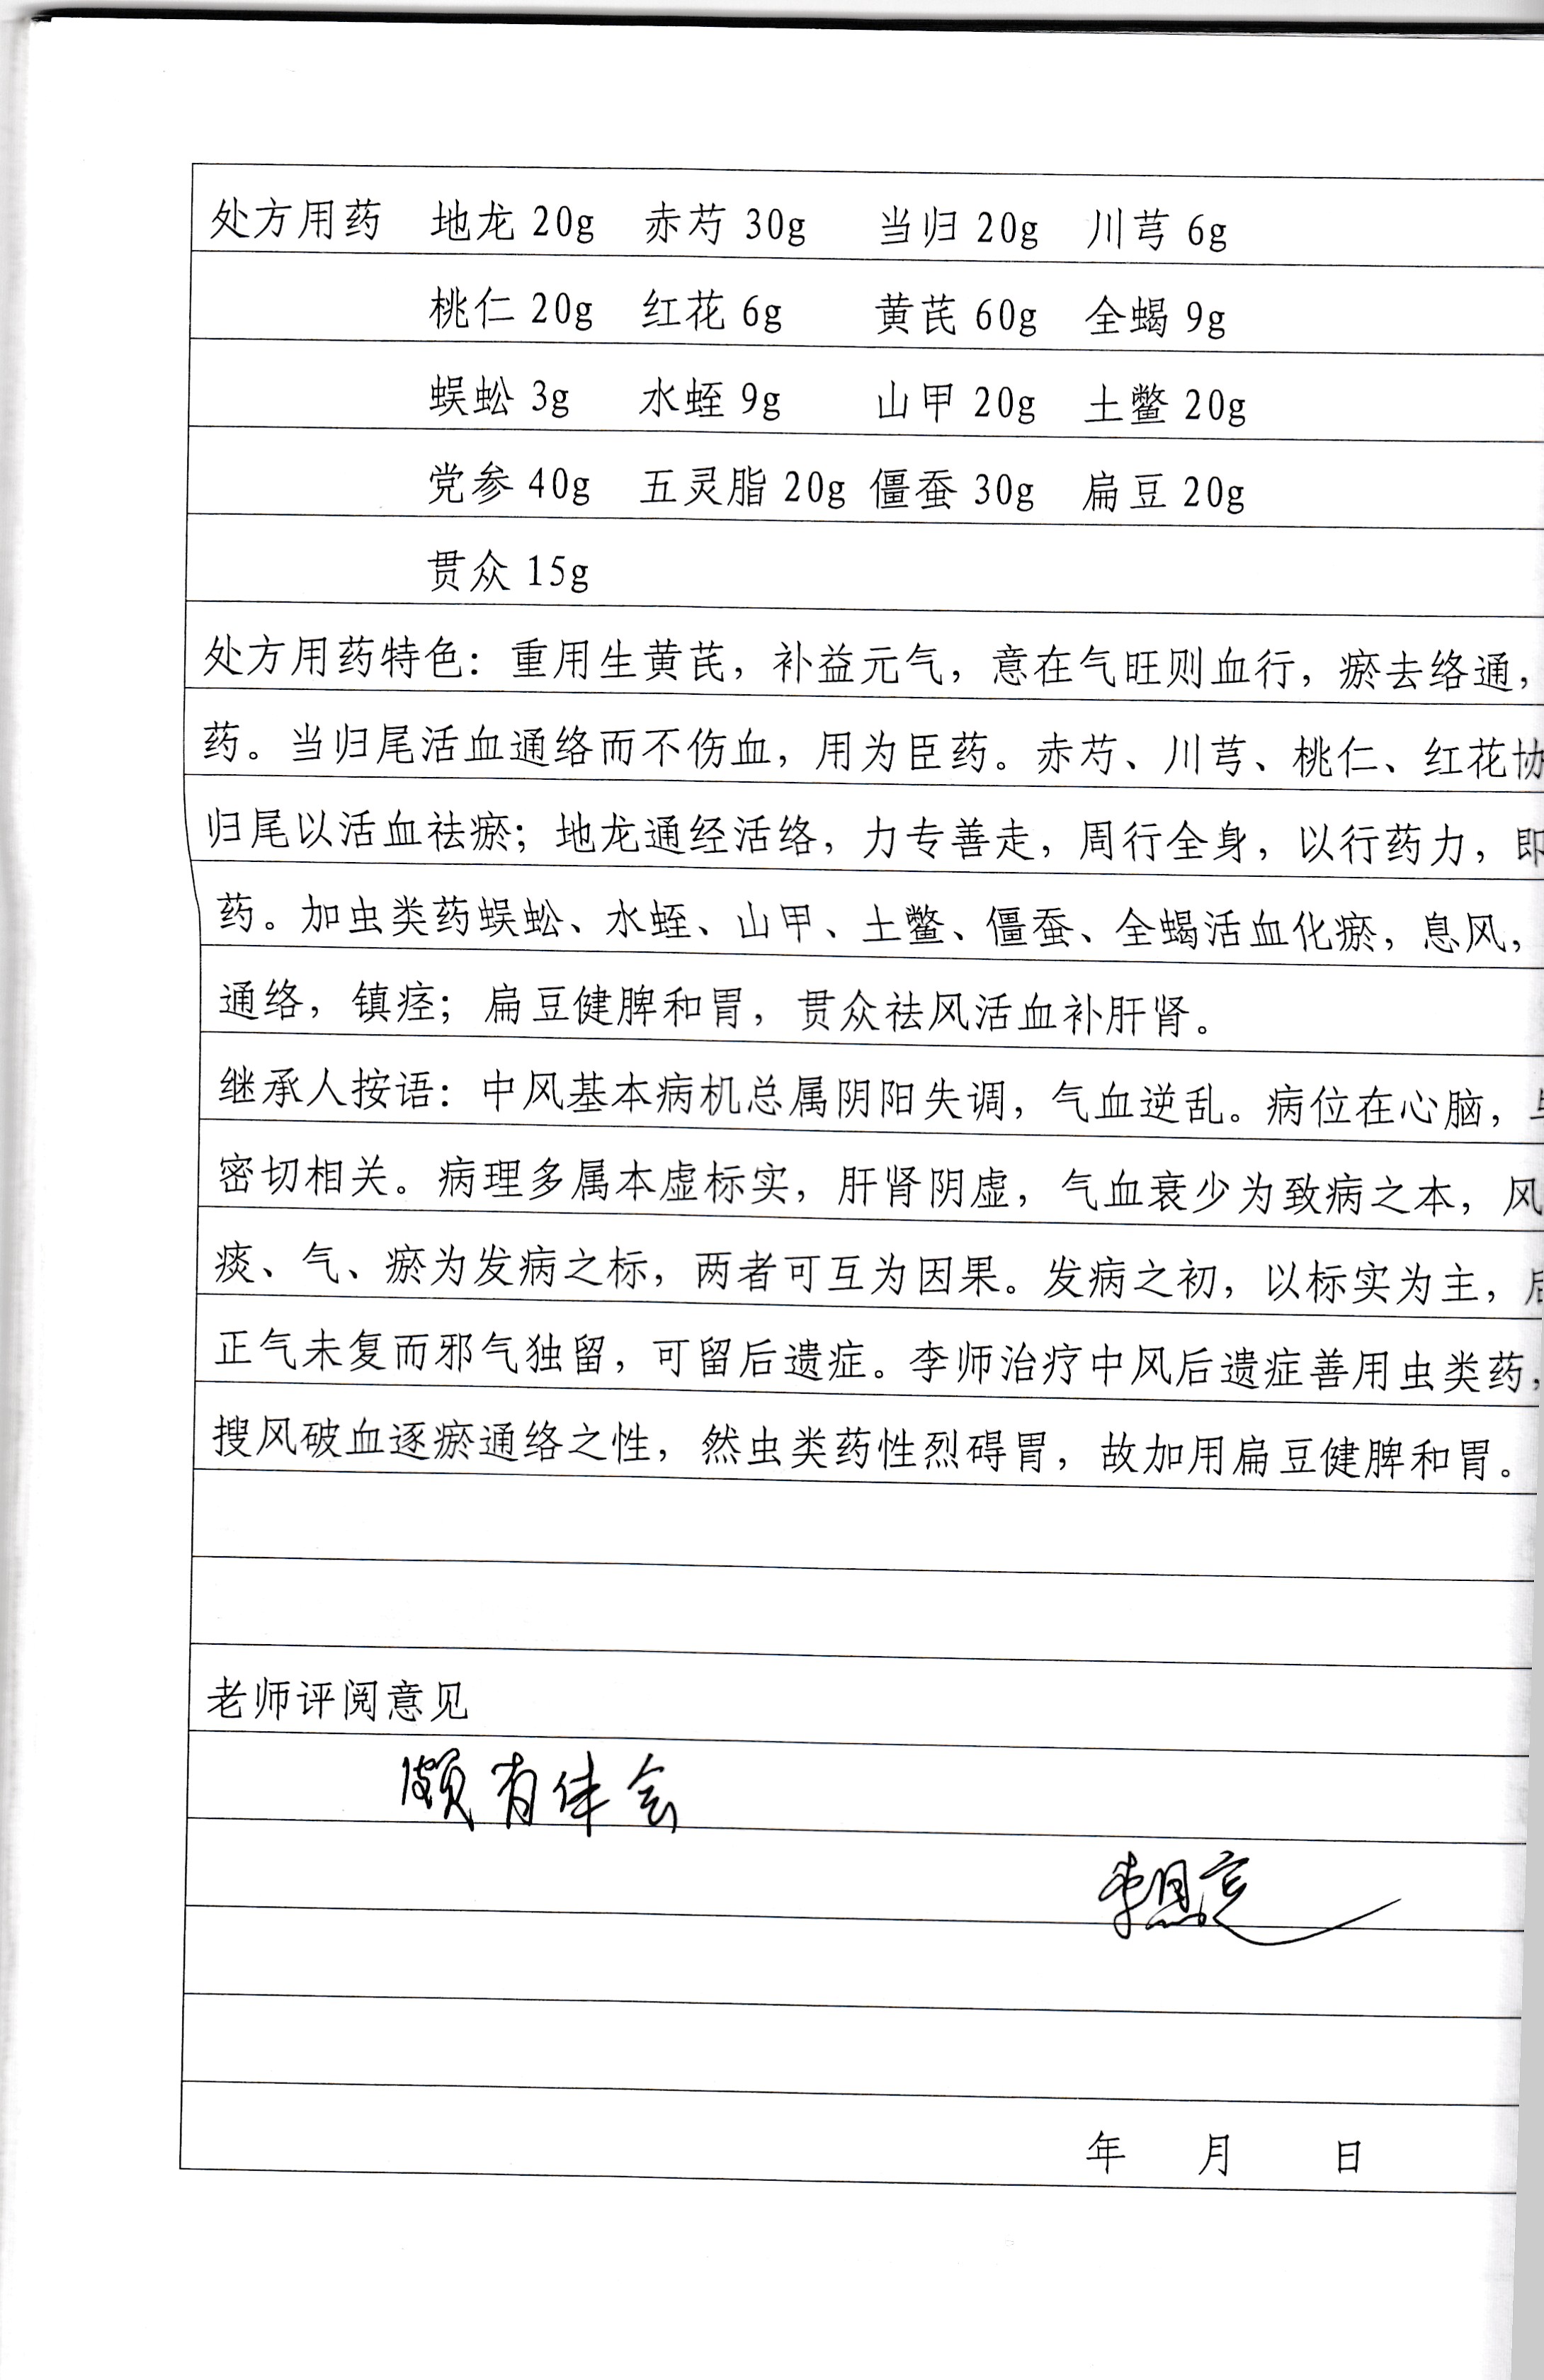 处方用药 地龙 20g 赤芍 30g 当归 20g 川芎 6g
桃仁 20g 红花 6g 黄芪 60g 全蝎 9g
蜈蚣 3g 水蛭 9g 山甲 20g 土鳖 20g
党参 40g 五灵脂 20g 僵蚕 30g 扁豆 20g
贯众 15g
处方用药特色：重用生黄芪，补益元气，意在气旺则血行，瘀去络通，
药。当归尾活血通络而不伤血，用为臣药。赤芍、川芎、桃仁、红花协
归尾以活血祛瘀；地龙通经活络，力专善走，周行全身，以行药力，即
药。加虫类药蜈蚣、水蛭、山甲、土鳖、僵蚕、全蝎活血化瘀，息风，
通络，镇痉；扁豆健脾和胃，贯众祛风活血补肝肾。
继承人按语：中风基本病机总属阴阳失调，气血逆乱。病位在心脑，
密切相关。病理多属本虚标实，肝肾阴虚，气血衰少为致病之本，风
痰、气、瘀为发病之标，两者可互为因果。发病之初，以标实为主，
正气未复而邪气独留，可留后遗症。李师治疗中风后遗症善用虫类药，
搜风破血逐瘀通络之性，然虫类药性烈碍胃，故加用扁豆健脾和胃。
老师评阅意见
颇有体会
年 月 日